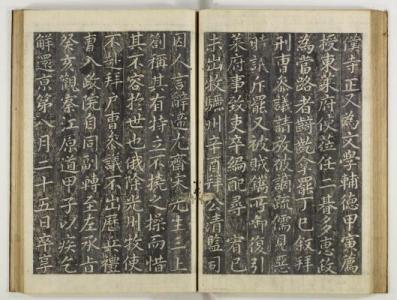 僕寺正又為文學輔德甲寅薦
授東萊府使莅任二朞多惠政
為當路者齮齕拿罷丁巳叙拜
刑曹叅議請放被謫疏儒見惡
時議斥罷又被賊鐫所啣復引
萊府事致吏卒編配尋宥己
未出牧驪州辛酉拜公清監司
因人言辭遞尤齋宋先生三上
劄稱其有持立不撓之操而惜
其不容於世也俄除光州牧使
不赴拜戶曹叅議不出歷兵禮
曹入政院自同副轉至左承旨
癸亥觀察江原道甲子以疾乞
解還京第八月二十五日卒享